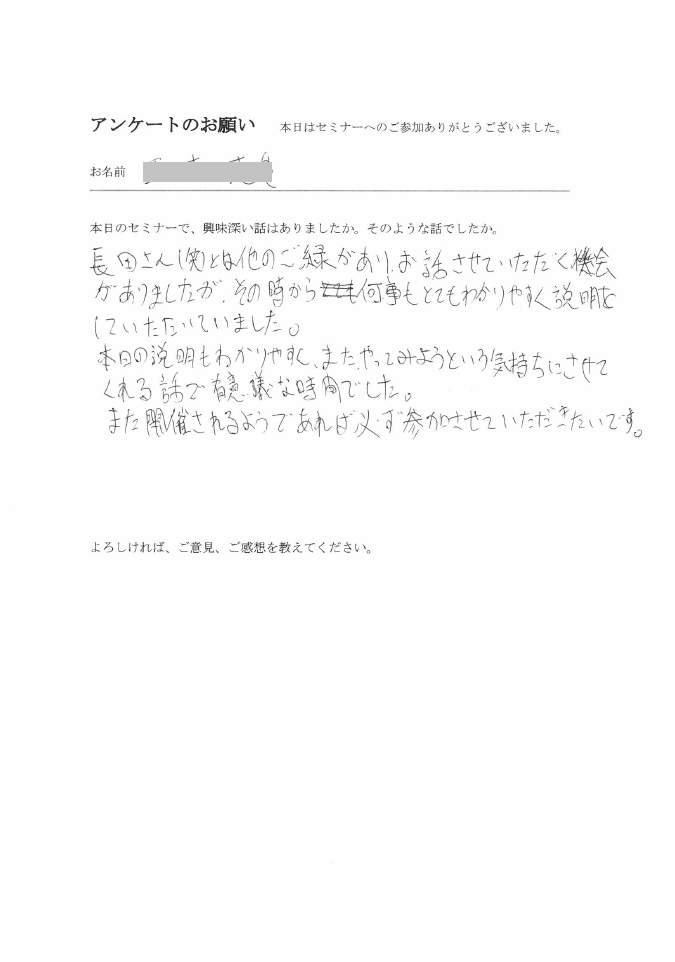 アンケートのお願い　本日はセミナーへのご参加ありがとうございました。
お名前
本日のセミナーで、興味深い話はありましたか。そのような話でしたか。
長田さん(笑)とは他のご縁があり、お話させていただく機会
がありましたが、その時から何事もとてもわかりやすく説明を
していただいていました。
本日の説明もわかりやすく、また、やってみようという気持ちにさせて
くれる話で有意義な時間でした。
また開催されるようであれば必ず参加させていただきたいです。
よろしければ、ご意見、ご感想を教えてください。